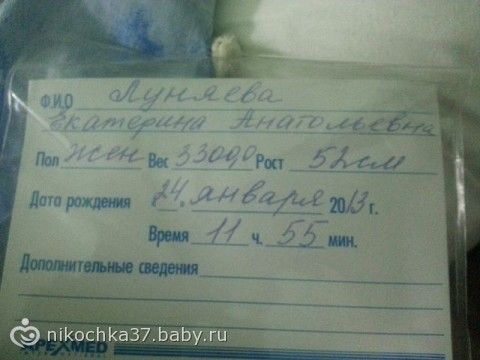 Ф.И.О Луняева
Екатерина Анатольевна
Пол жен Вес 3300,0 Рост 52см
Дата рождения 24 января 2013 г.
Время 11 ч. 55 мин.
Дополнительные сведения
APEXMED
nikochka37.baby.ru